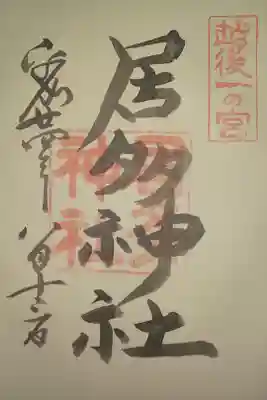 越後一の宮
居多神社
居多
神社
平成廿四年八月十三日